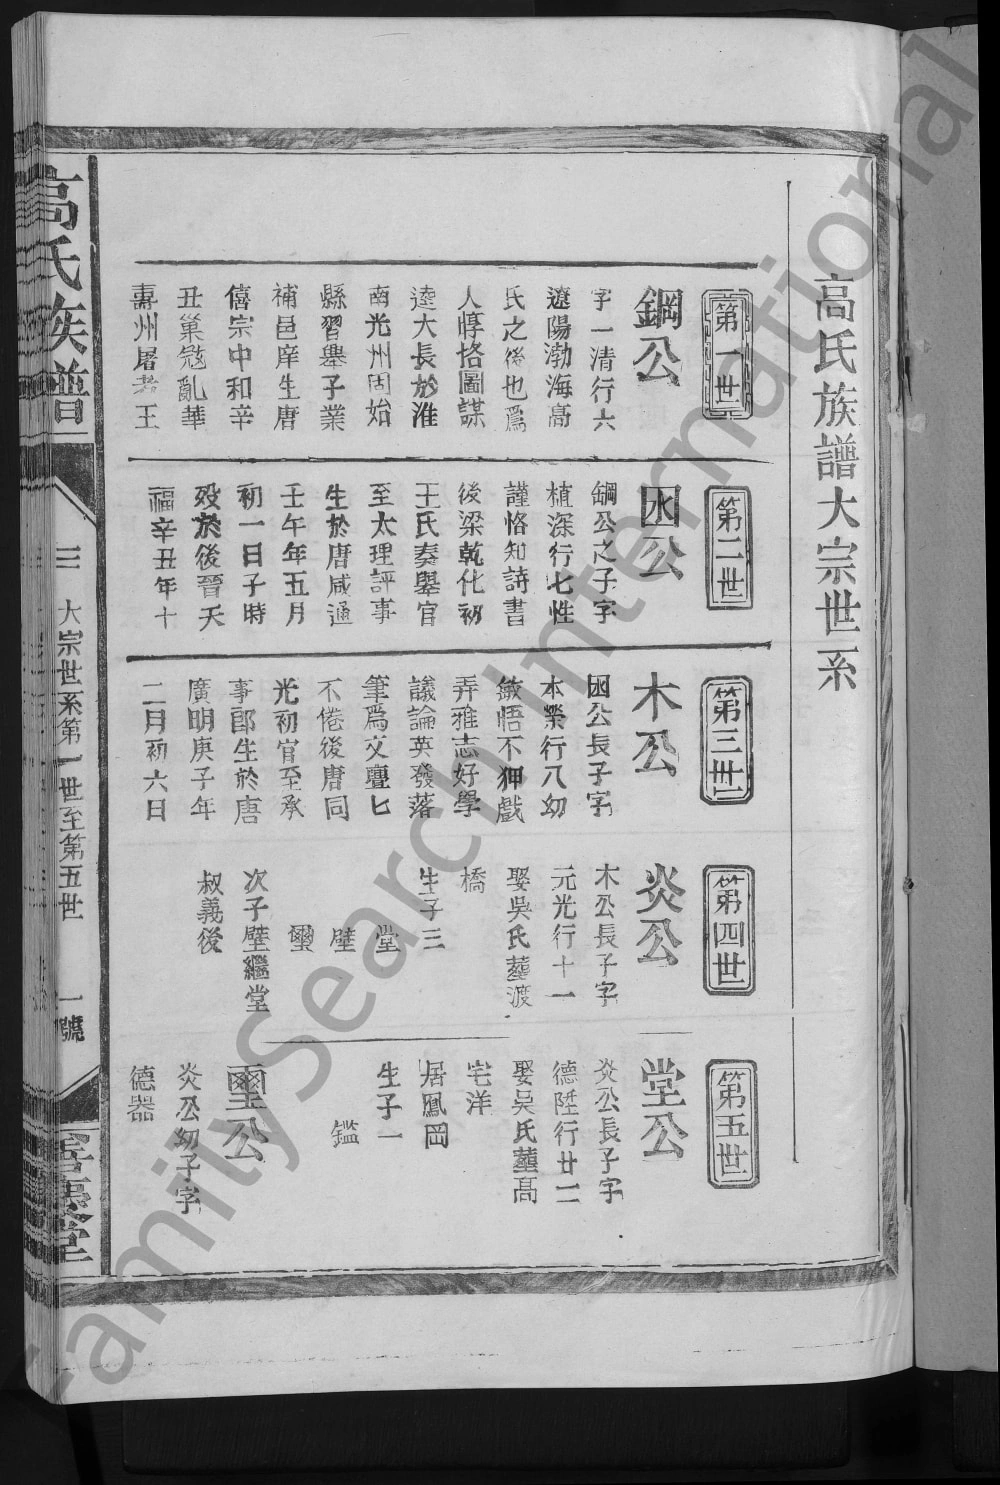 高氏族譜大宗世系
第一世
鋼公
字一清行六
遼陽渤海高
氏之後也爲
人惇恪圖謀
遠大長於淮
南光州固始
縣習舉子業
補邑庠生唐
僖宗中和辛
丑巢宼亂華
壽州屠者王
第二世
公
鋼公之子字
植深行七性
謹恪知詩書
後梁乾化初
王氏奏舉官
至太理評事
生於唐咸通
壬午年五月
初一日子時
歿於後晉天
福辛丑年十
第三世
木公
公長子字
本榮行八幼
敏悟不狎戲
弄雅志好學
議論英發落
筆爲文亹匕
不倦後唐同
光初官至承
事郎生於唐
廣明庚子年
二月初六日
第四世
炎公
木公長子字
元光行十一
娶吳氏葬渡
橋
生子三
堂
壁
壐
次子壁繼堂
叔義後
第五世
堂公
炎公長子字
德陞行廿二
娶吳氏葬高
宅洋
居鳳岡
生子一
鑑
壐公
炎公幼子字
德器
高氏族譜
三
大宗世系第一世至第五世
一號
慶堂
FamilySearch International